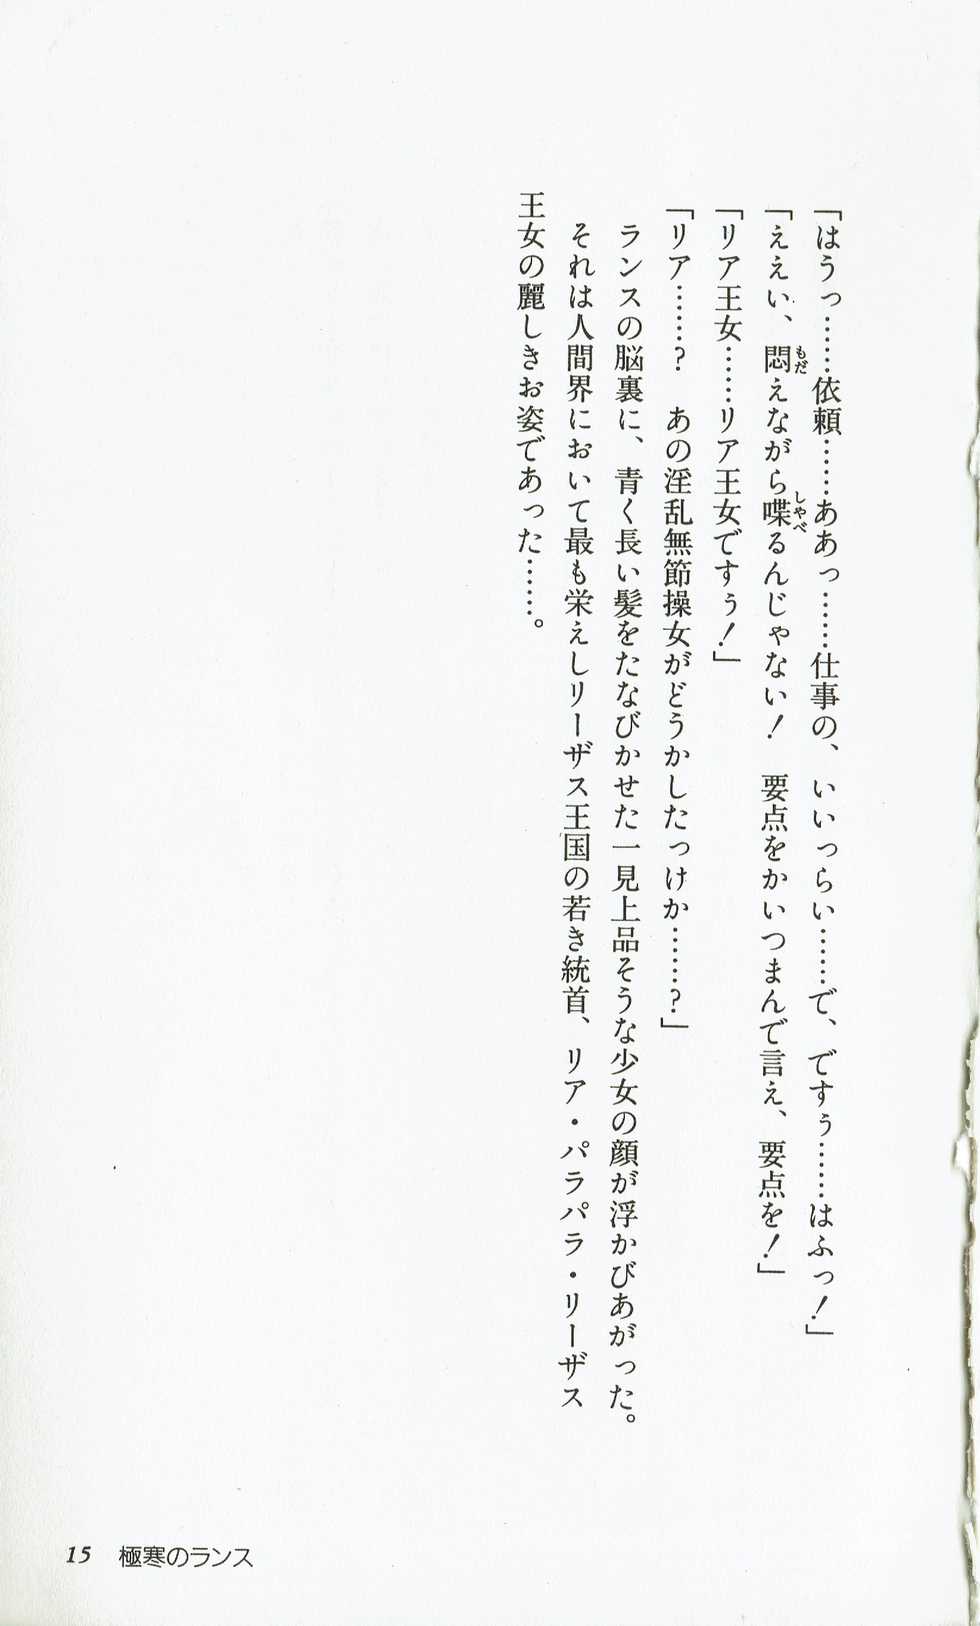 「はうっ……依頼……ああっ……仕事の、いいっらい……で、ですぅ……はふっ！」
「ええい、悶えながら喋るんじゃない！　要点をかいつまんで言え、要点を！」
「リア王女……リア王女ですぅ！」
「リア……？　あの淫乱無節操女がどうかしたっけか……？」
　ランスの脳裏に、青く長い髪をたなびかせた一見上品そうな少女の顔が浮かびあがった。
　それは人間界において最も栄えしリーザス王国の若き統首、リア・パラパラ・リーザス
王女の麗しきお姿であった……。
15　極寒のランス